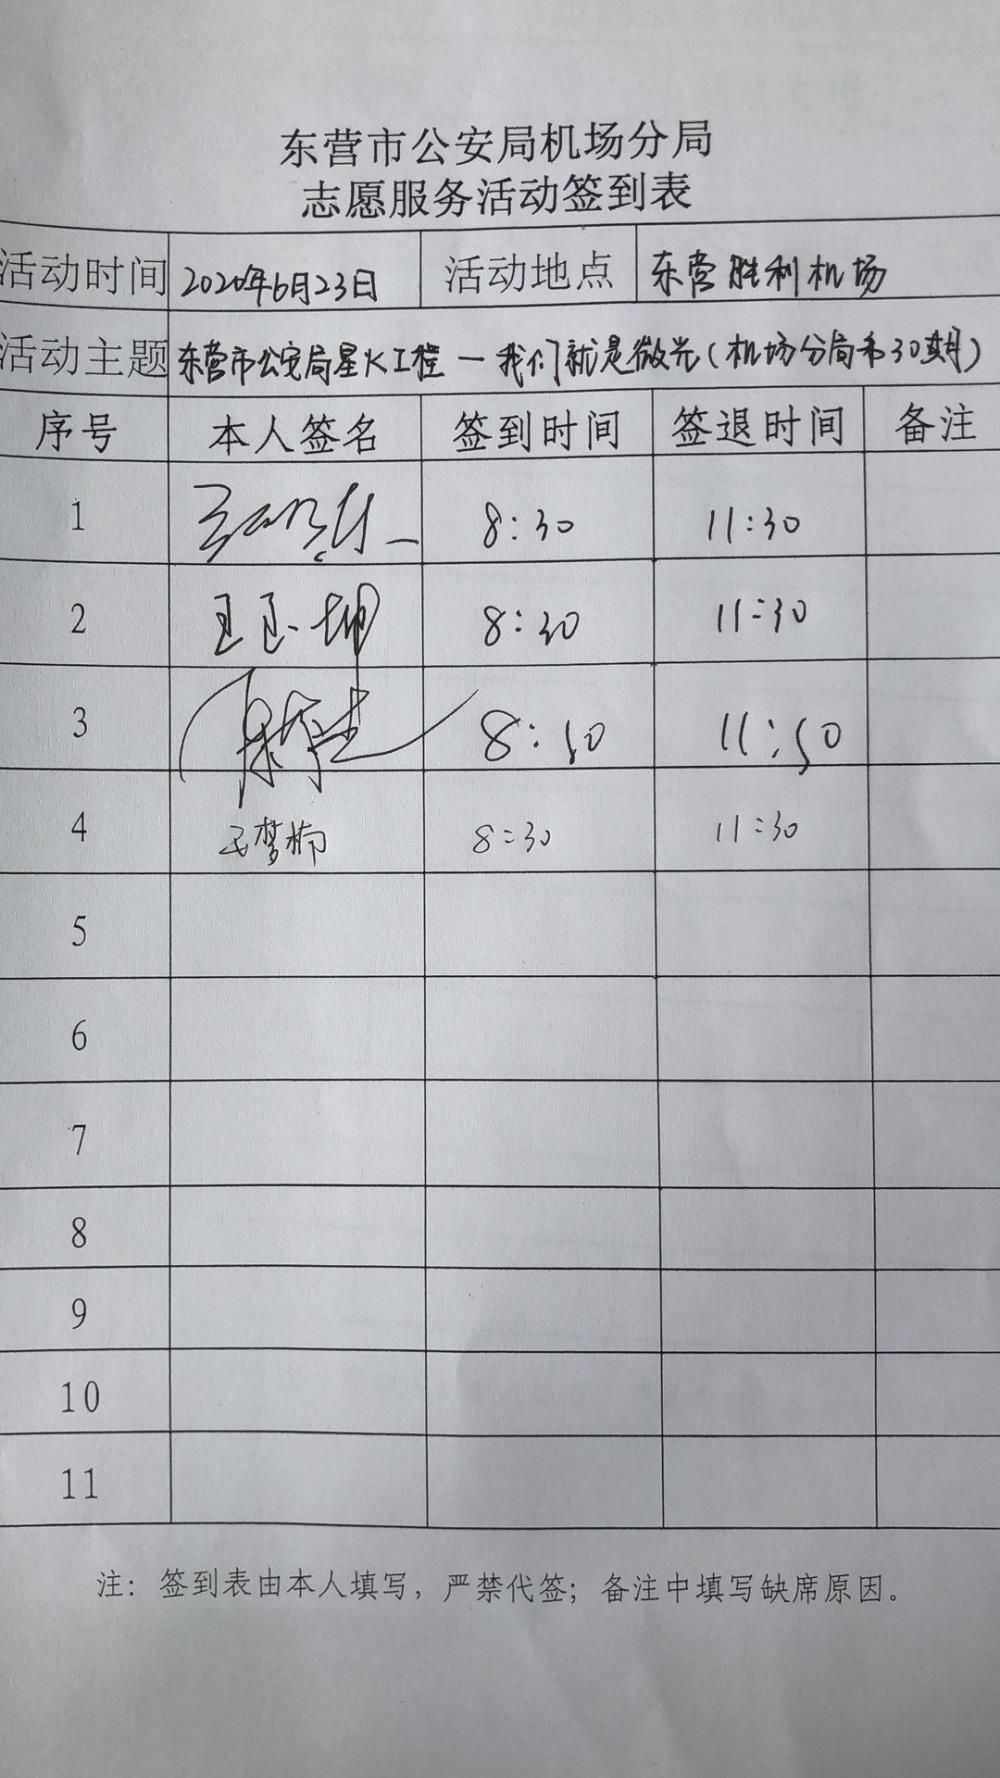 东营市公安局机场分局
志愿服务活动签到表
活动时间 2020年6月23日 活动地点 东营胜利机场
活动主题 东营市公安局星火工程 — 我们就是微光（机场分局第30期）
序号 本人签名 签到时间 签退时间 备注
1 8:30 11:30
2 王玉坤 8:30 11:30
3 8:50 11:50
4 王梦楠 8:30 11:30
5
6
7
8
9
10
11
注：签到表由本人填写，严禁代签；备注中填写缺席原因。